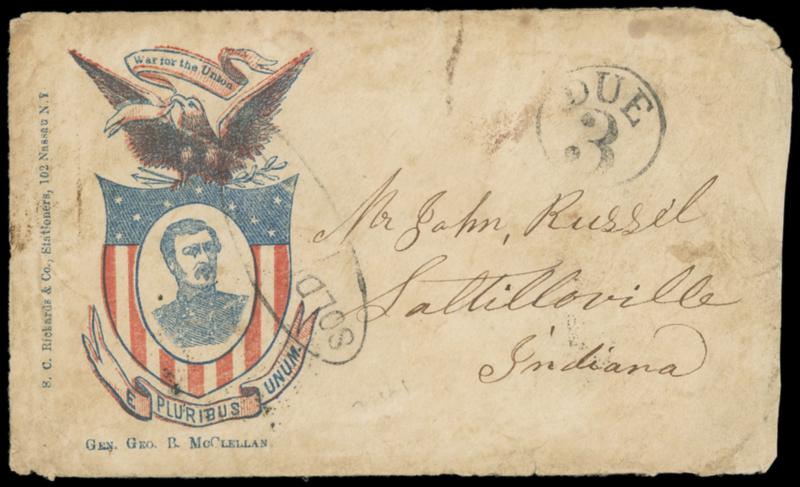 War for the Union
S. C. Rickards & Co., Stationers, 102 Nassau N.Y
E PLURIBUS UNUM.
GEN. GEO. B. McCLELLAN
DUE
3
SOLD
Mr John, Russil
Lattilloville
Indiana